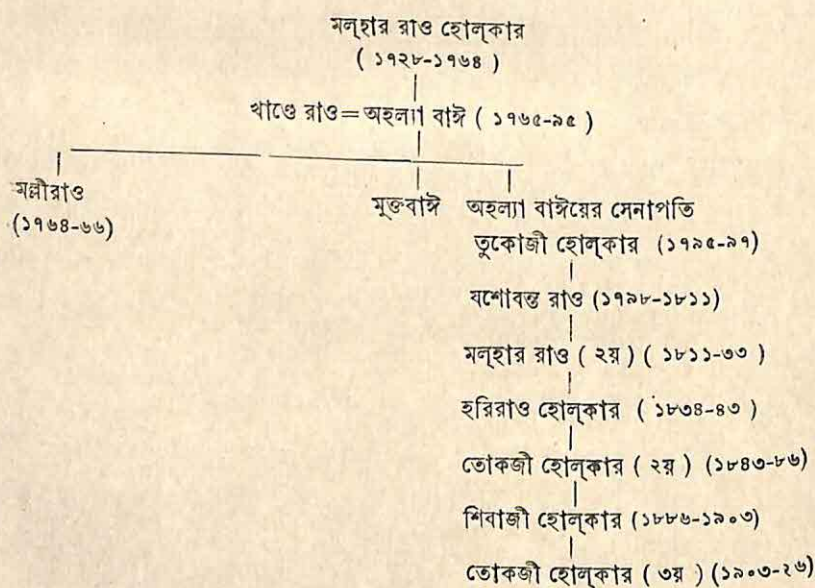 মল্‌হার রাও হোল্‌কার
( ১৭২৮-১৭৬৪ )
খাণ্ডে রাও=অহল্যা বাঈ ( ১৭৬৫-৯৫ )
মল্লীরাও
(১৭৬৪-৬৬)
মুক্তবাঈ
অহল্যা বাঈয়ের সেনাপতি
তুকোজী হোল্‌কার (১৭৯৫-৯৭)
যশোবন্ত রাও (১৭৯৮-১৮১১)
মল্‌হার রাও ( ২য় ) ( ১৮১১-৩৩ )
হরিরাও হোল্‌কার ( ১৮৩৪-৪৩ )
তোকজী হোল্‌কার ( ২য় ) (১৮৪৩-৮৬)
শিবাজী হোল্‌কার (১৮৮৬-১৯০৩)
তোকজী হোল্‌কার ( ৩য় ) (১৯০৩-২৬)